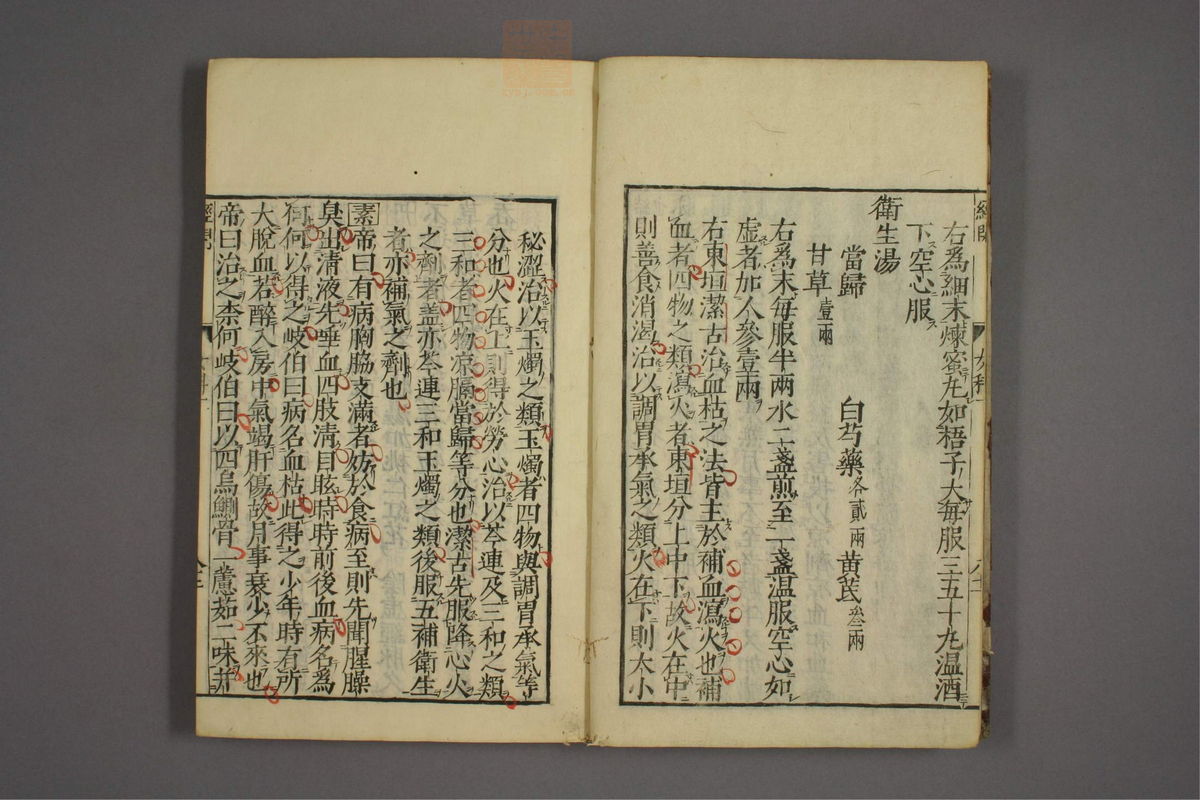 右爲細末煉蜜丸如梧子大每服三五十丸温酒
下空心服
衛生湯
當歸　白芍藥各貳兩　黄芪叁兩
甘草壹兩
右爲末每服半兩水二盞煎至一盞温服空心如
虚者加人參壹兩
右東垣潔古治血枯之法皆主於補血瀉火也補
血者四物之類瀉火者東垣分上中下故火在中
則善食消渴治以調胃承氣之類火在下則大小
秘澀治以玉燭之類玉燭者四物與調胃承氣等
分也火在上則得於勞心治以芩連及三和之類
三和者四物凉膈當歸等分也潔古先服降心火
之劑者盖亦芩連三和玉燭之類後服五補衛生
者亦補氣之劑也
素帝曰有病胸脇支滿者妨於食病至則先聞腥臊
臭出清液先唾血四肢清目眩時時前後血病名爲
何何以得之岐伯曰病名血枯此得之少年時有所
大脫血若醉入房中氣竭肝傷故月事衰少不來也
帝曰治之柰何岐伯曰以四烏鰂骨一藘茹二味并